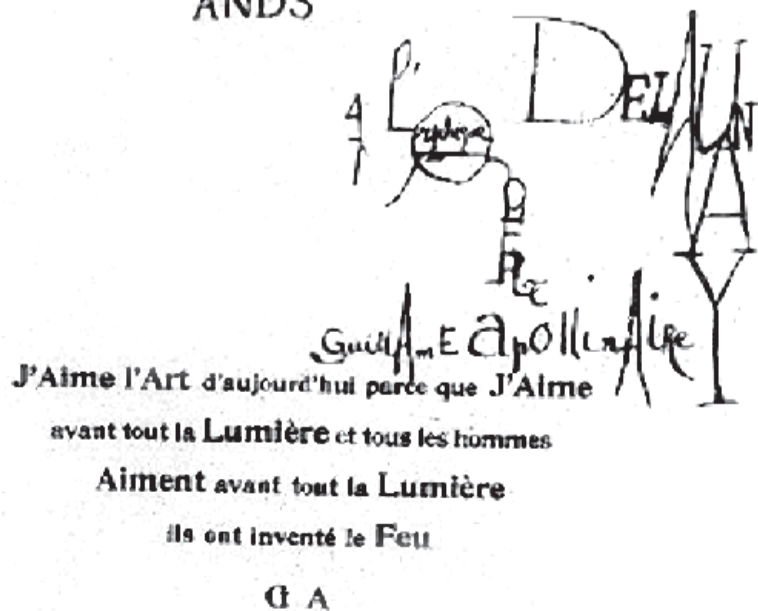 ANDS
DELAUNAY
GuillAmE ApOllinAire
J'Aime l'Art d'aujourd'hui parce que J'Aime
avant tout la Lumière et tous les hommes
Aiment avant tout la Lumière
ils ont inventé le Feu
G A